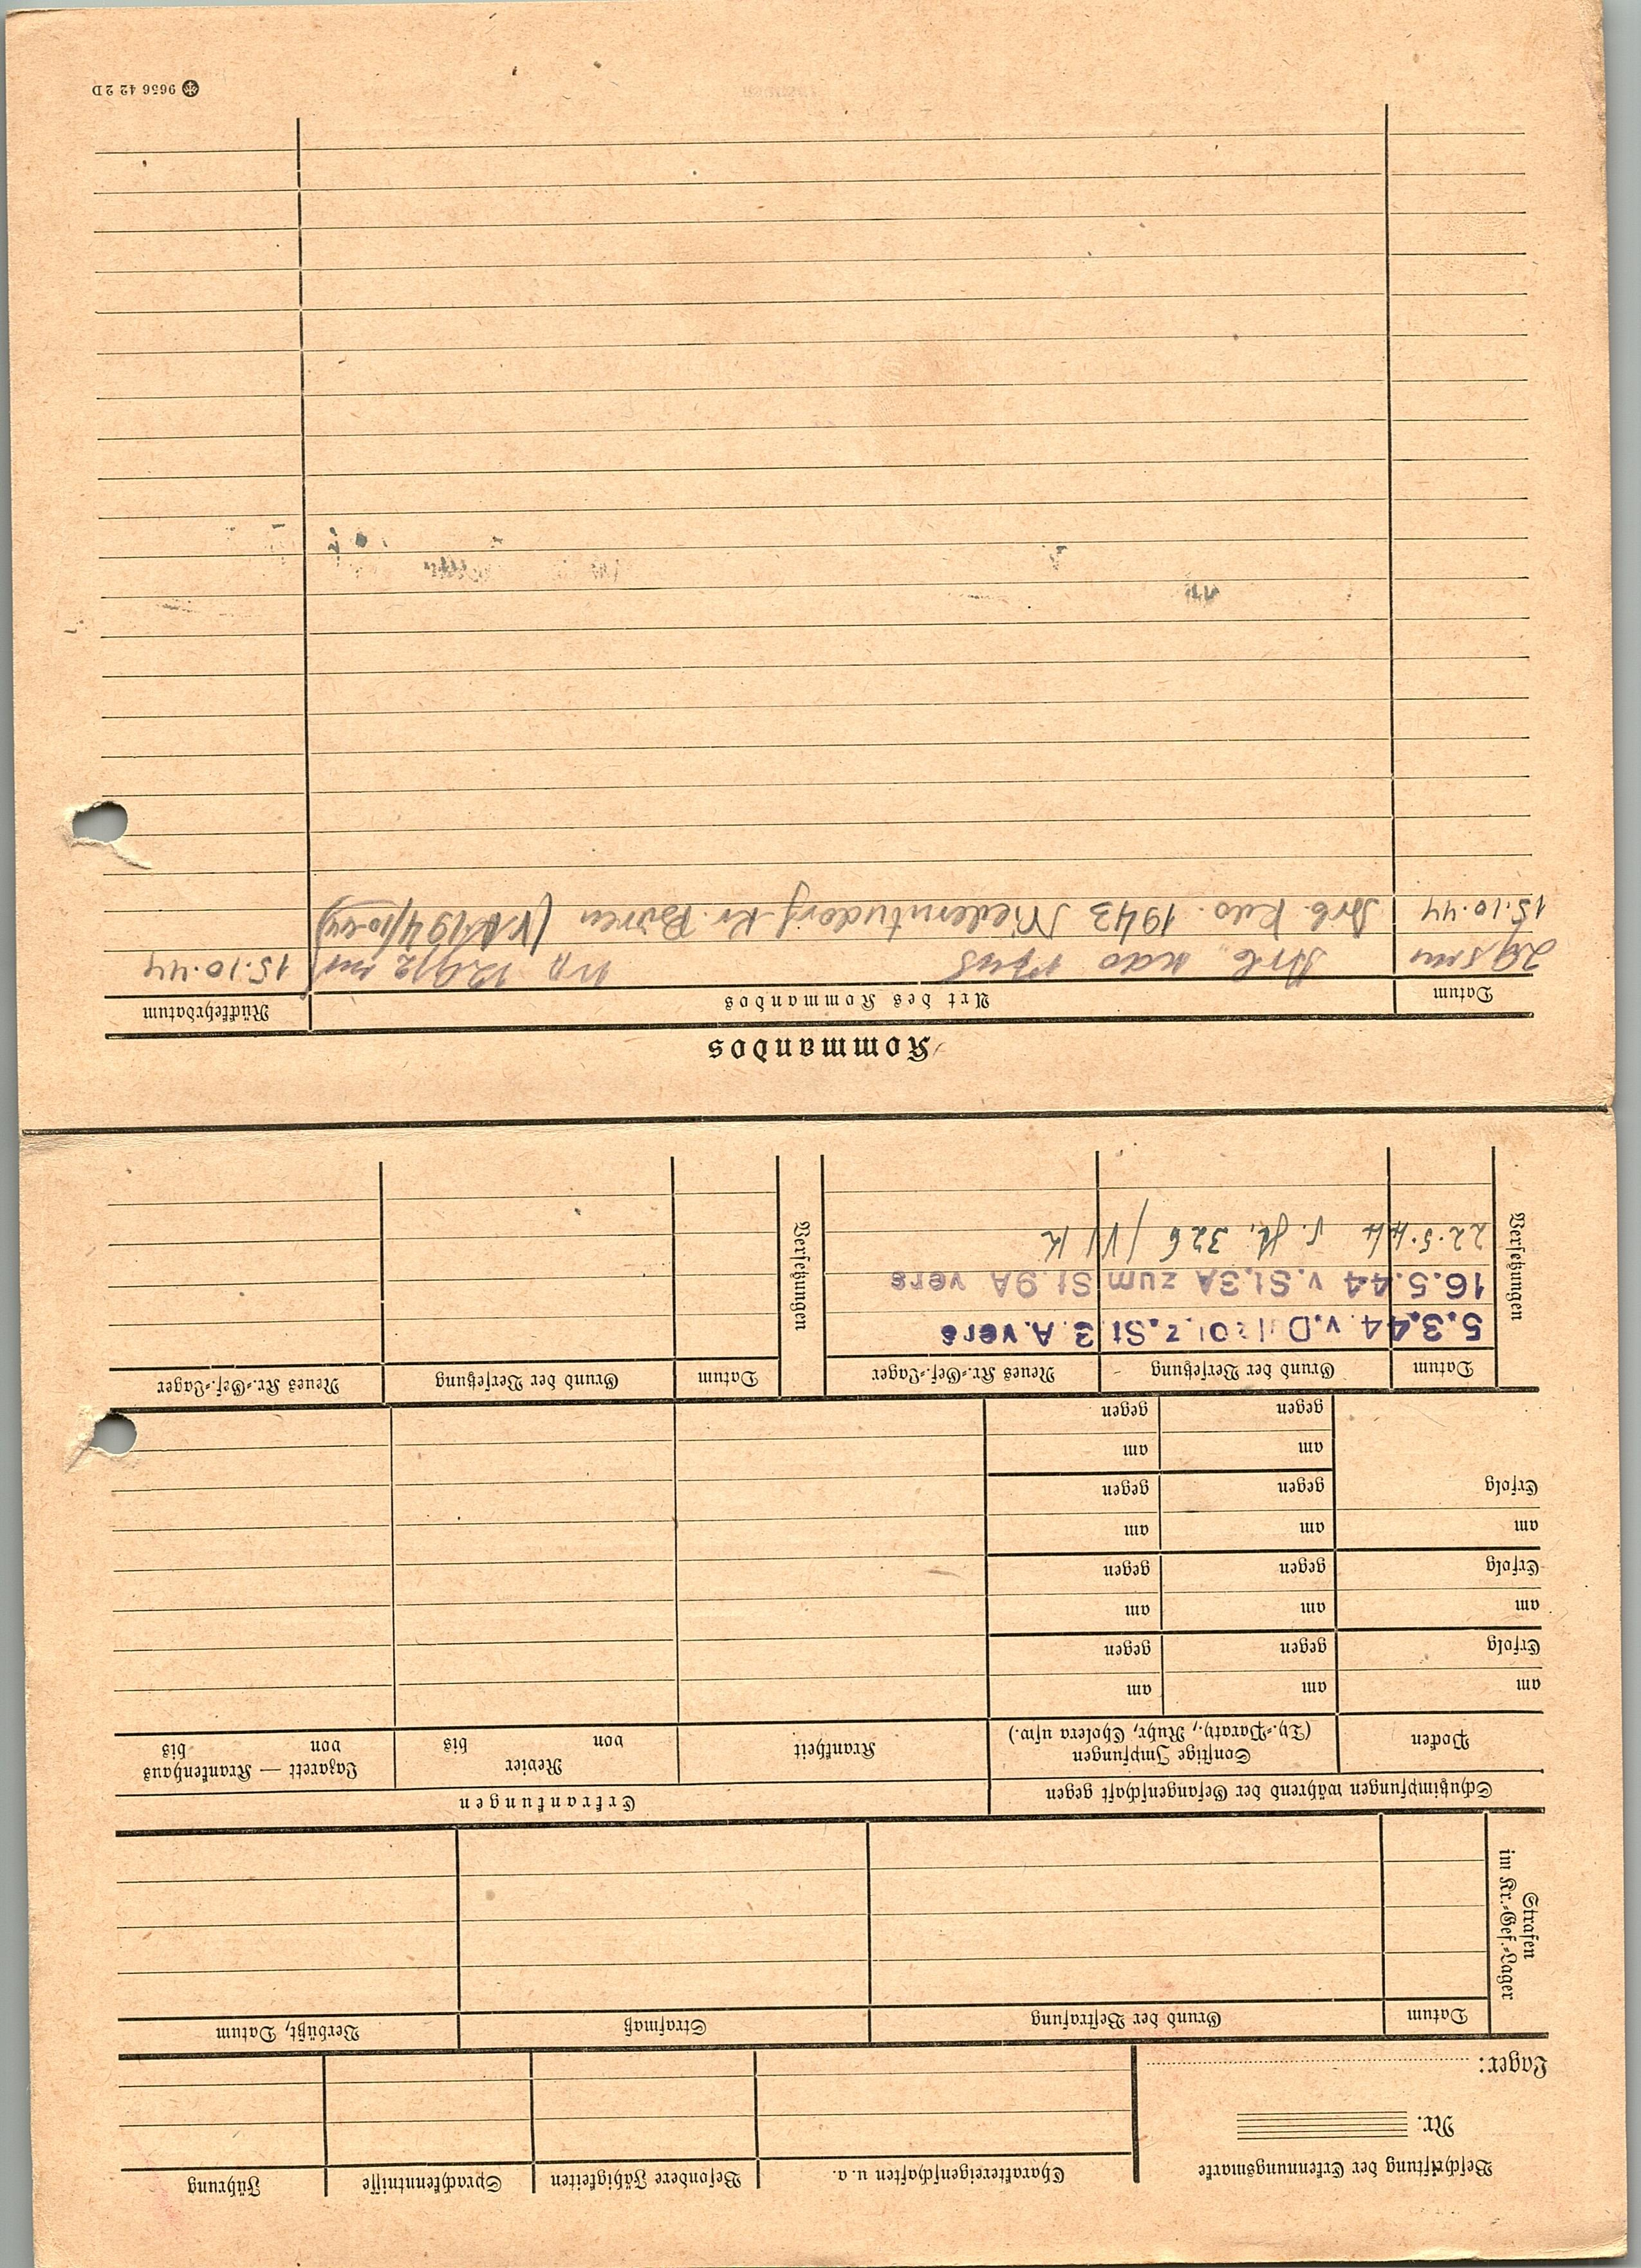 Beschriftung der Erkennungsmarke
Nr.
Lager:
Charaktereigenschaften u. a. Besondere Fähigkeiten Sprachkenntnisse Führung
Strafen
im Kr.=Gef.=Lager
Datum Grund der Bestrafung Strafmaß Verbüßt, Datum
Schutzimpfungen während der Gefangenschaft gegen Erkrankungen
Pocken Sonstige Impfungen Krankheit Revier Lazarett — Krankenhaus
(Ty.=Paraty., Ruhr, Cholera usw.) von bis von bis
am am am
Erfolg gegen gegen
am am am
Erfolg gegen gegen
am am am
Erfolg gegen gegen
am am
gegen gegen
Versetzungen
Datum Grund der Versetzung Neues Kr.=Gef.=Lager
5.3.44 z. St. 3. A. vers
16.5.44 v. St. 3A zum St. 9A vers
22.5.44 326 / VI K
Versetzungen
Datum Grund der Versetzung Neues Kr.=Gef.=Lager
Kommandos
Datum Art des Kommandos Rückkehrdatum
Arb. 15.10.44
15.10.44 Arb. Kdo. 1943 Niederntudorf Kr. Büren
9656 42 2 D